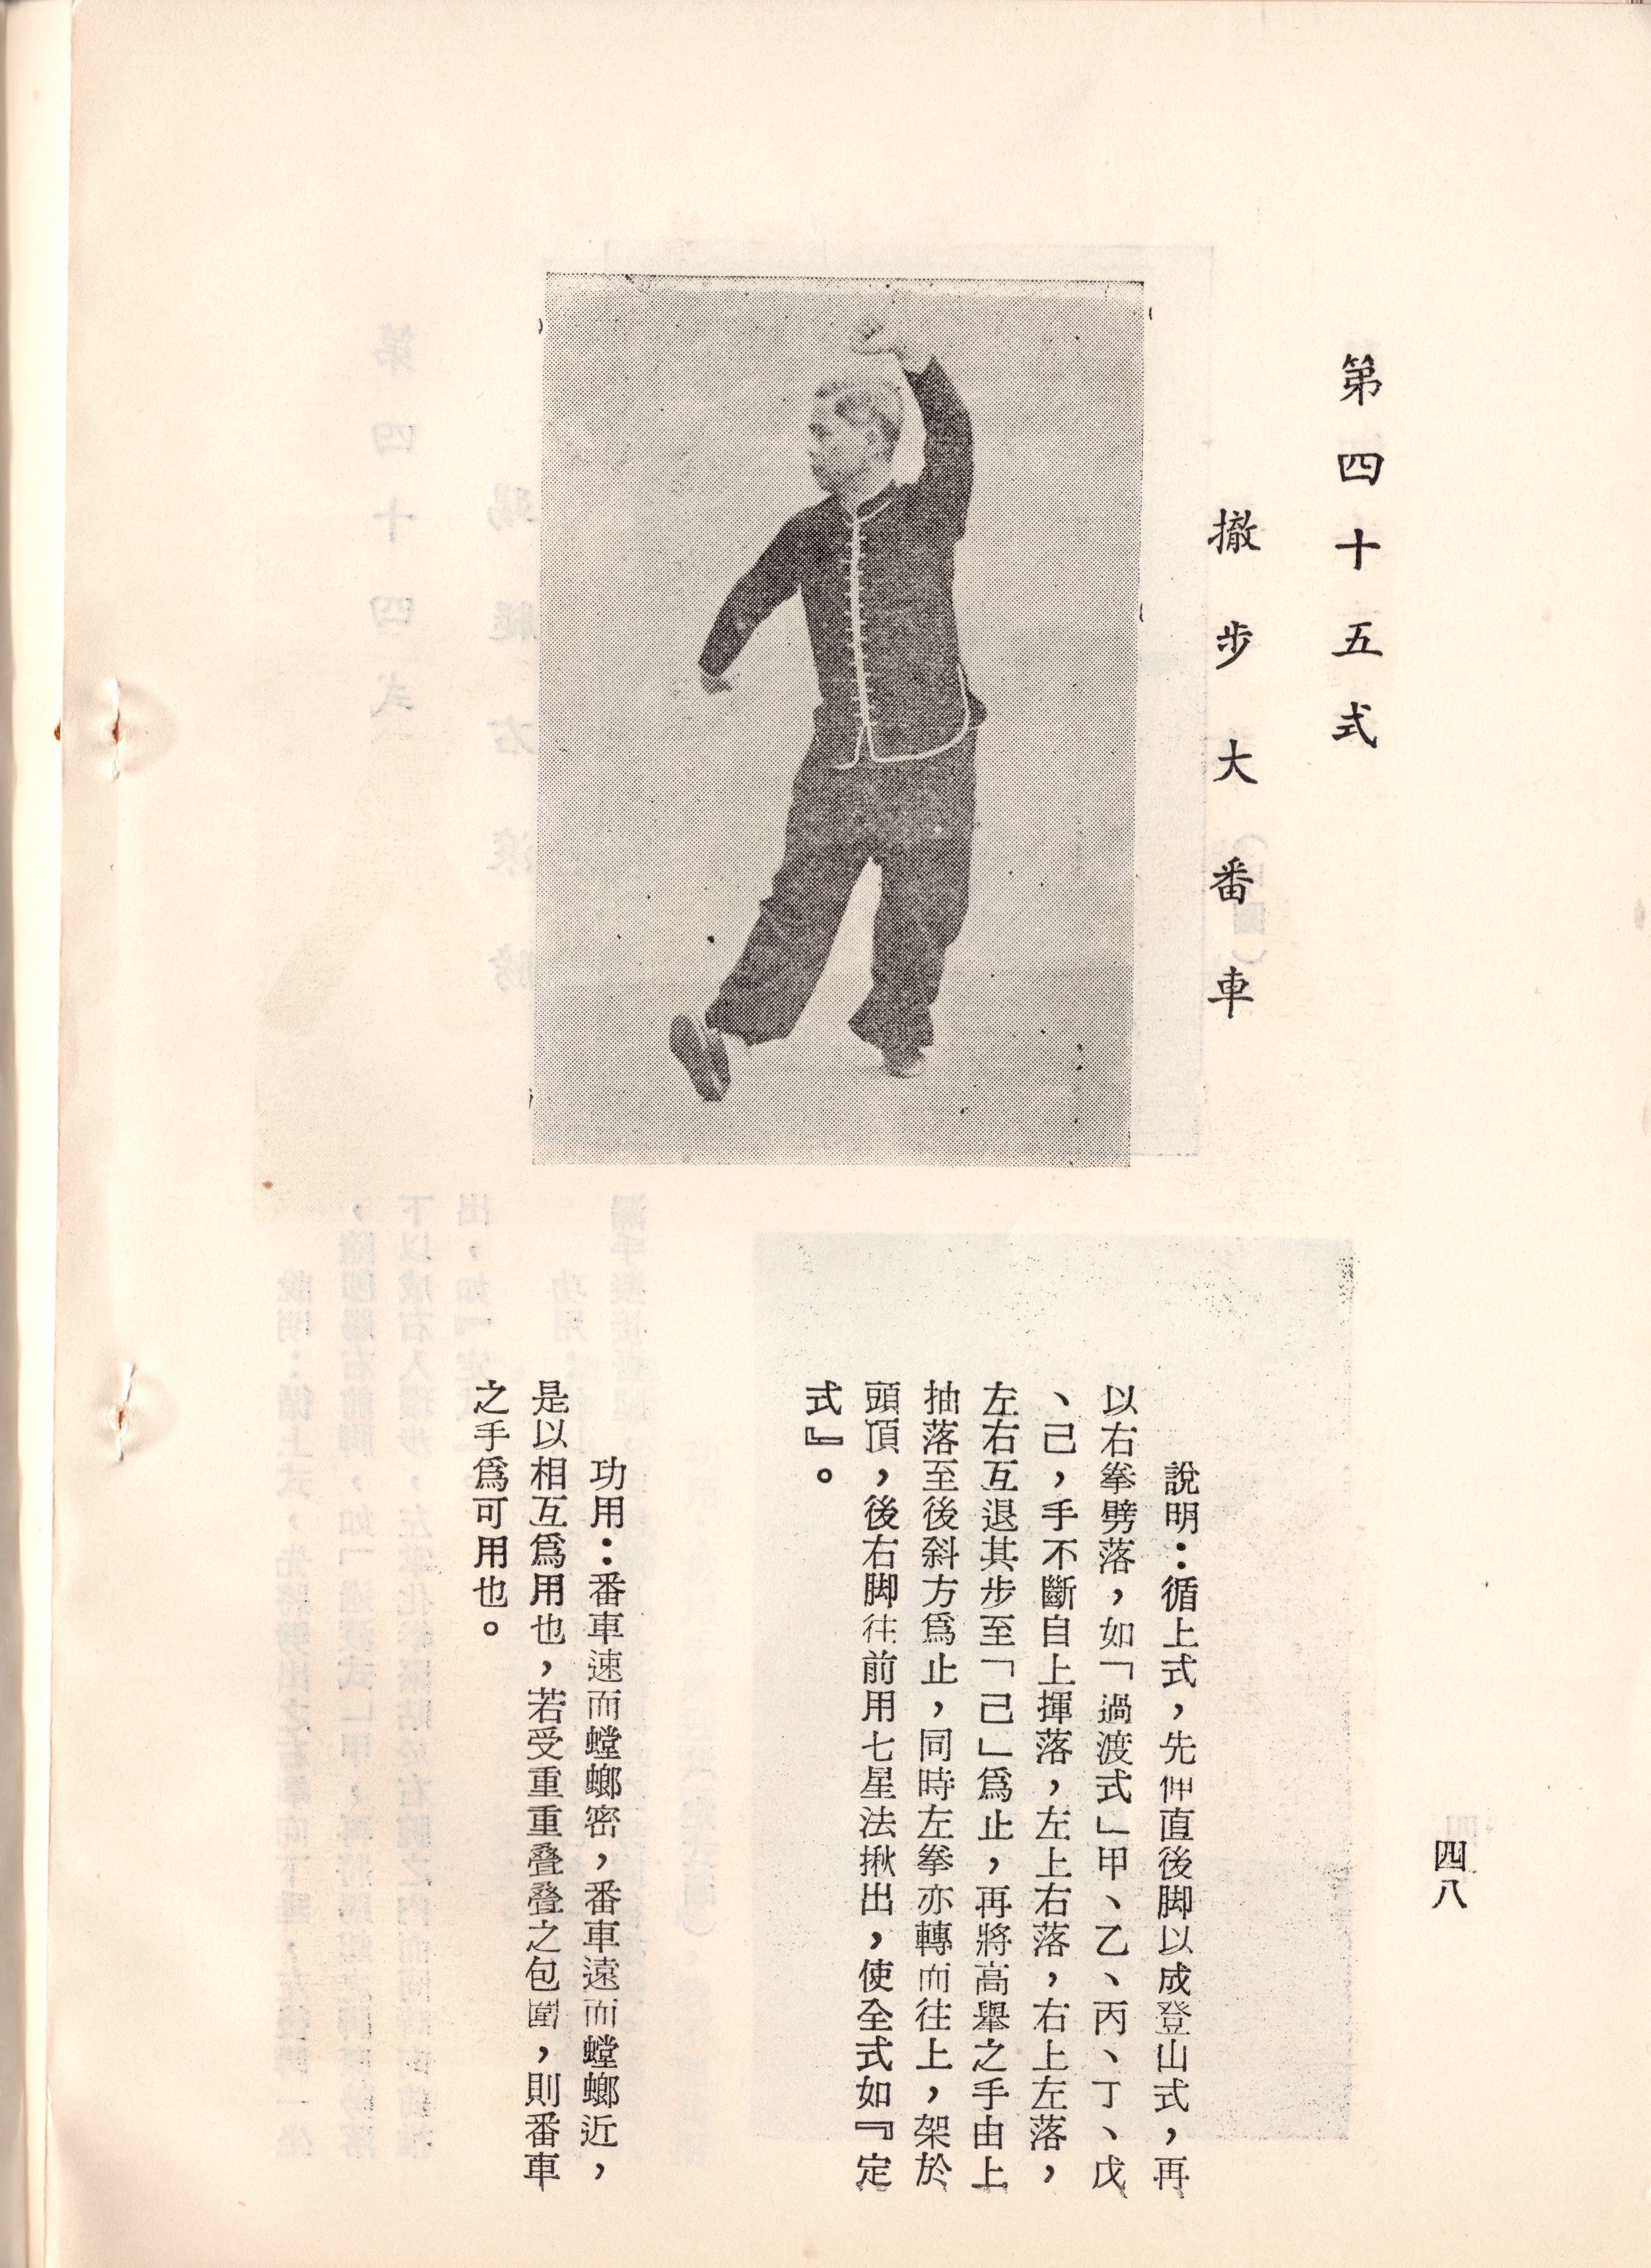 四八
第四十五式
撤步大番車
說明：循上式，先伸直後脚以成登山式，再
以右拳劈落，如「過渡式」甲、乙、丙、丁、戊
、己，手不斷自上揮落，左上右落，右上左落，
左右互退其步至「己」爲止，再將高舉之手由上
抽落至後斜方爲止，同時左拳亦轉而往上，架於
頭頂，後右脚往前用七星法揪出，使全式如『定
式』。
功用：番車速而螳螂密，番車遠而螳螂近，
是以相互爲用也，若受重重叠叠之包圍，則番車
之手爲可用也。